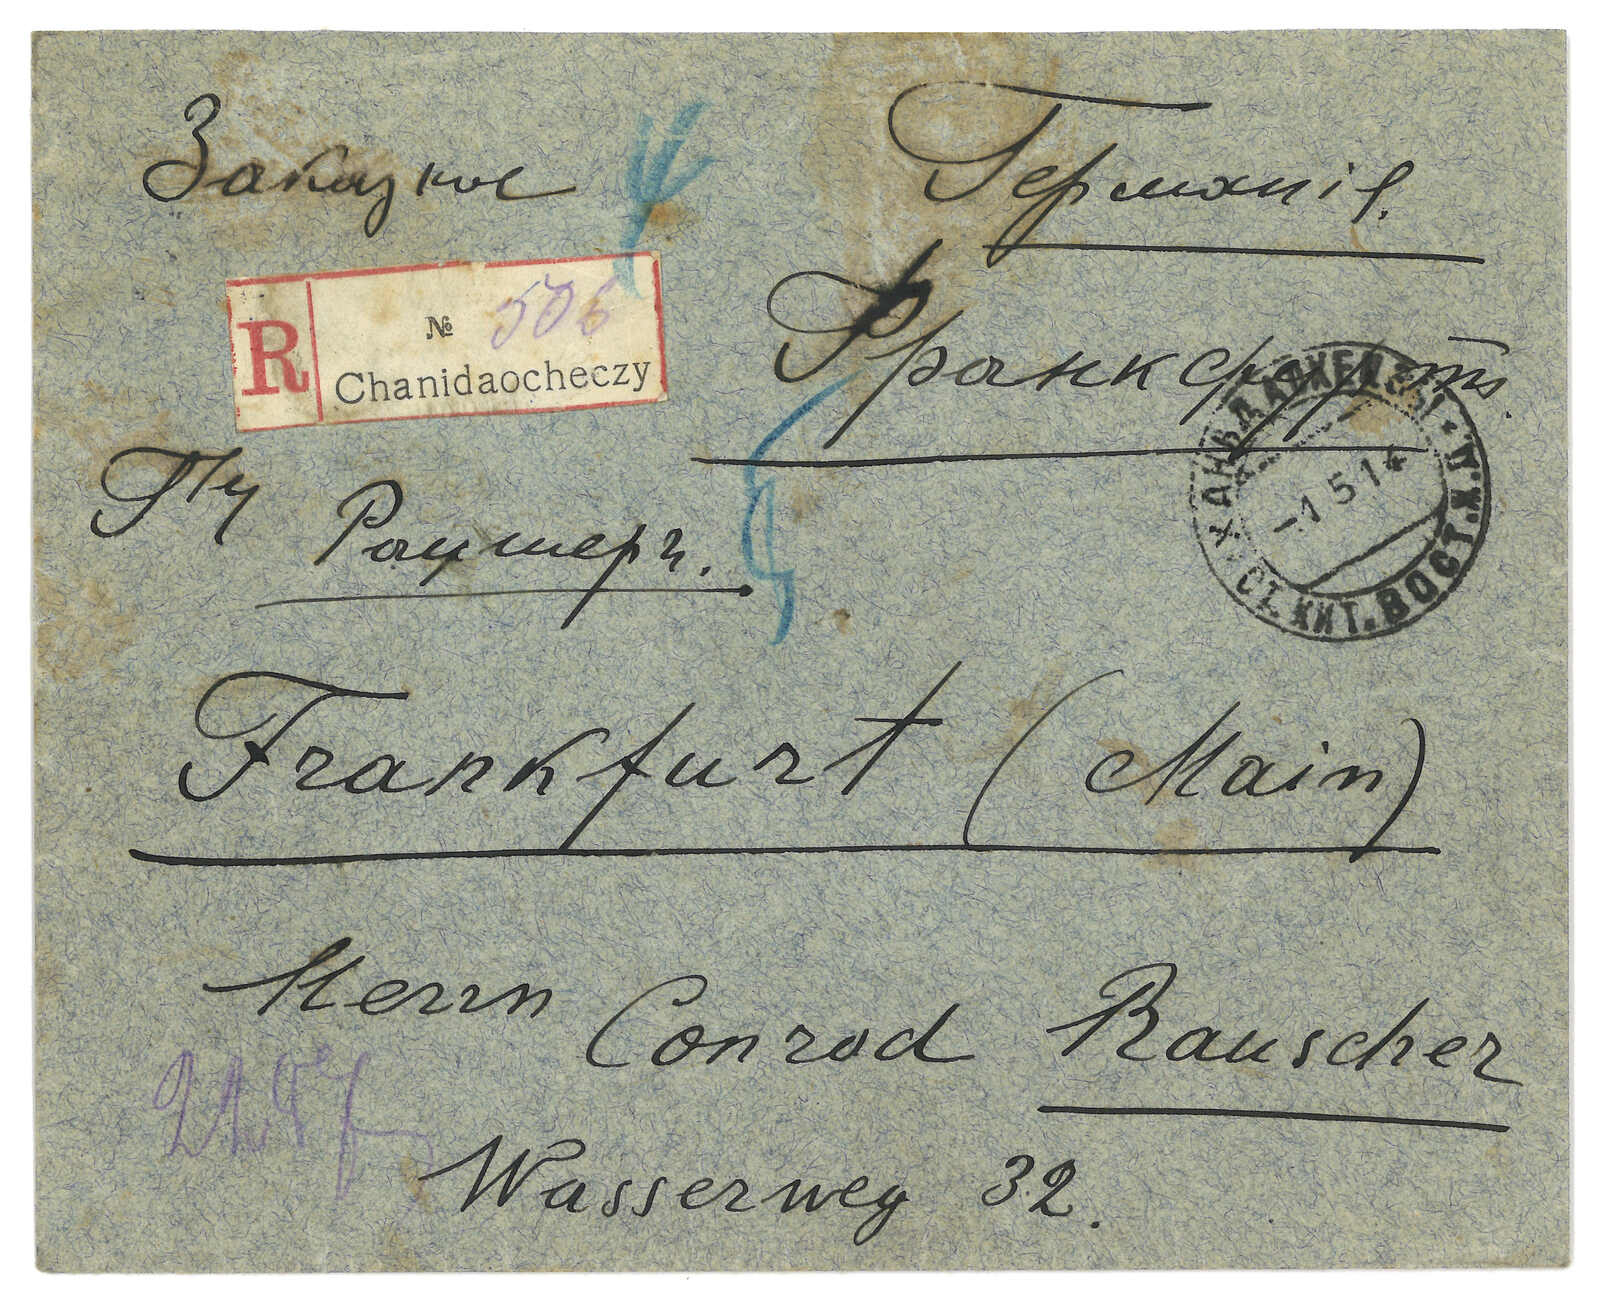 Заказное
Германія.
R № 506
Chanidaocheczy
Франкфуртъ.
ХАНЬДАОХЕЦЗЫ * П.Т.К. * СТ. КИТ. ВОСТ. Ж.Д.
-1 5 14
Г-ну Раушеръ.
Frankfurt (Main)
Herrn Conrad Rauscher
Wasserweg 32.